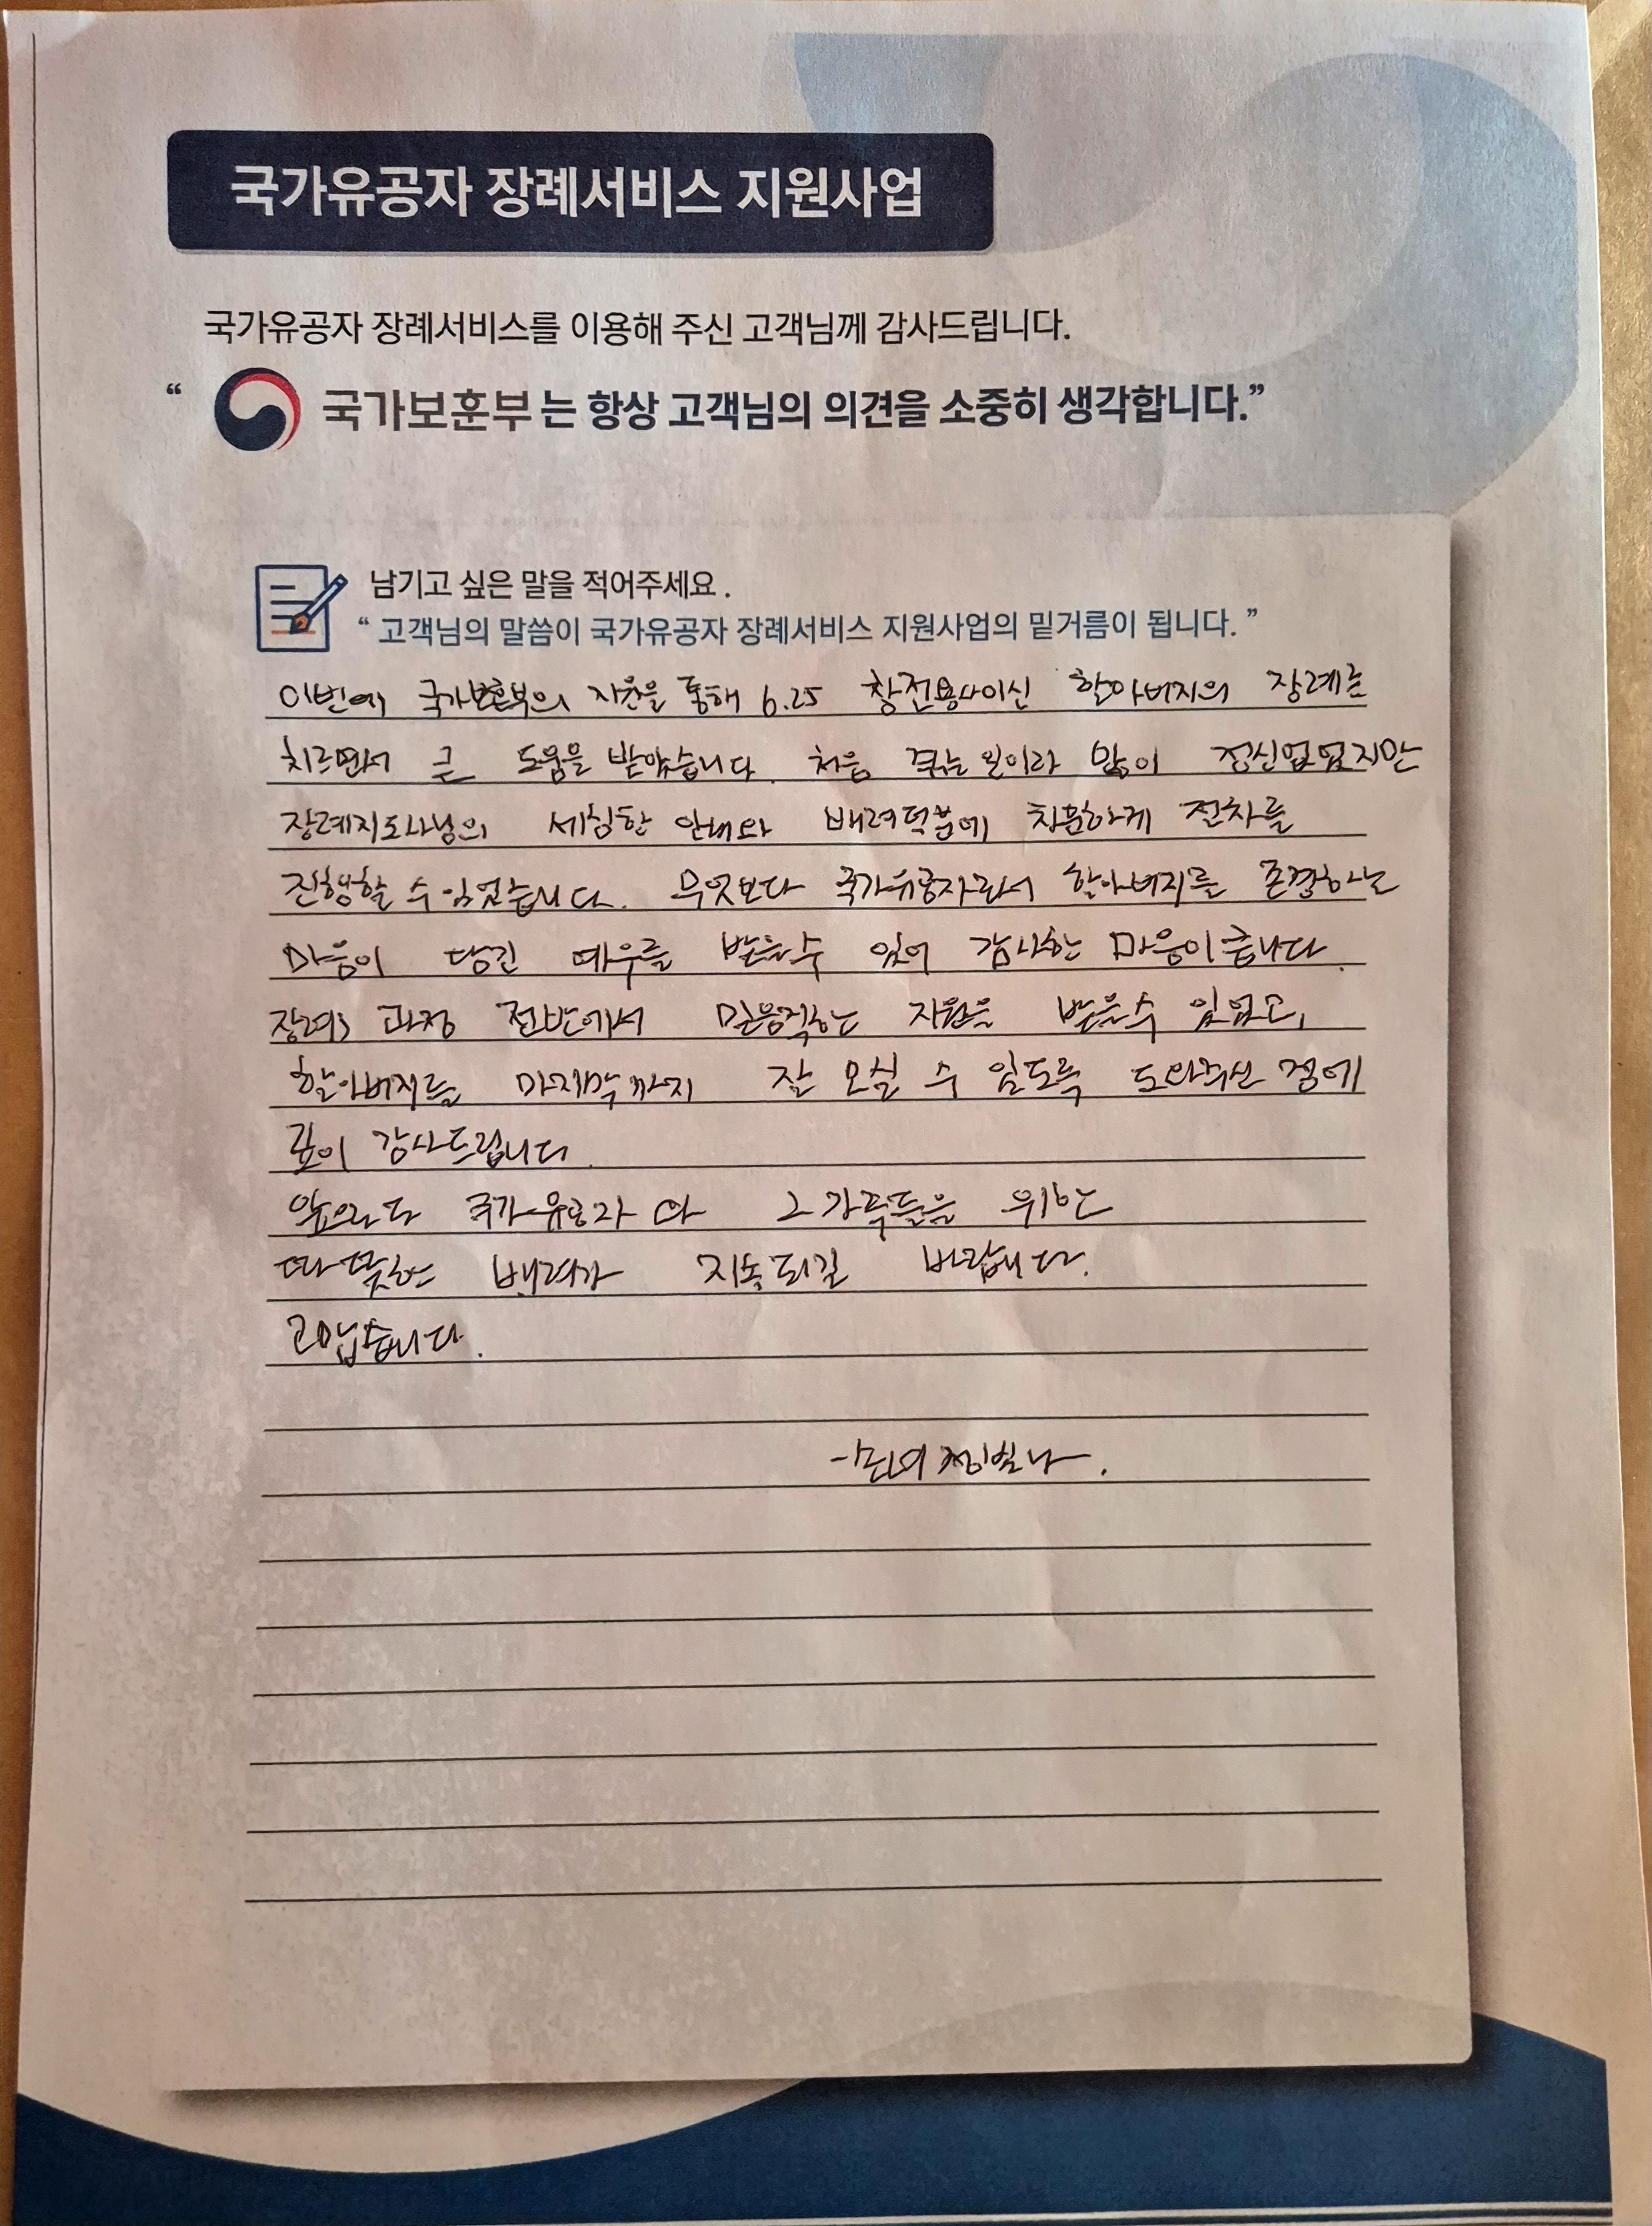 국가유공자 장례서비스 지원사업
국가유공자 장례서비스를 이용해 주신 고객님께 감사드립니다.
“ 국가보훈부 는 항상 고객님의 의견을 소중히 생각합니다.”
남기고 싶은 말을 적어주세요 .
“ 고객님의 말씀이 국가유공자 장례서비스 지원사업의 밑거름이 됩니다. ”
이번에 국가보훈부의 지원을 통해 6.25 참전용사이신 할아버지의 장례를
치르면서 큰 도움을 받았습니다. 처음 겪는 일이라 많이 정신없었지만
장례지도사님의 세심한 안내와 배려덕분에 차분하게 절차를
진행할 수 있었습니다. 무엇보다 국가유공자로서 할아버지를 존경하는
마음이 담긴 예우를 받을수 있어 감사한 마음이큽니다.
장례 과정 전반에서 믿음직한 지원을 받을수 있었고,
할아버지를 마지막까지 잘 모실 수 있도록 도와주신 점에
깊이 감사드립니다.
앞으로도 국가유공자 와 그가족들을 위한
따뜻한 배려가 지속되길 바랍니다.
고맙습니다.